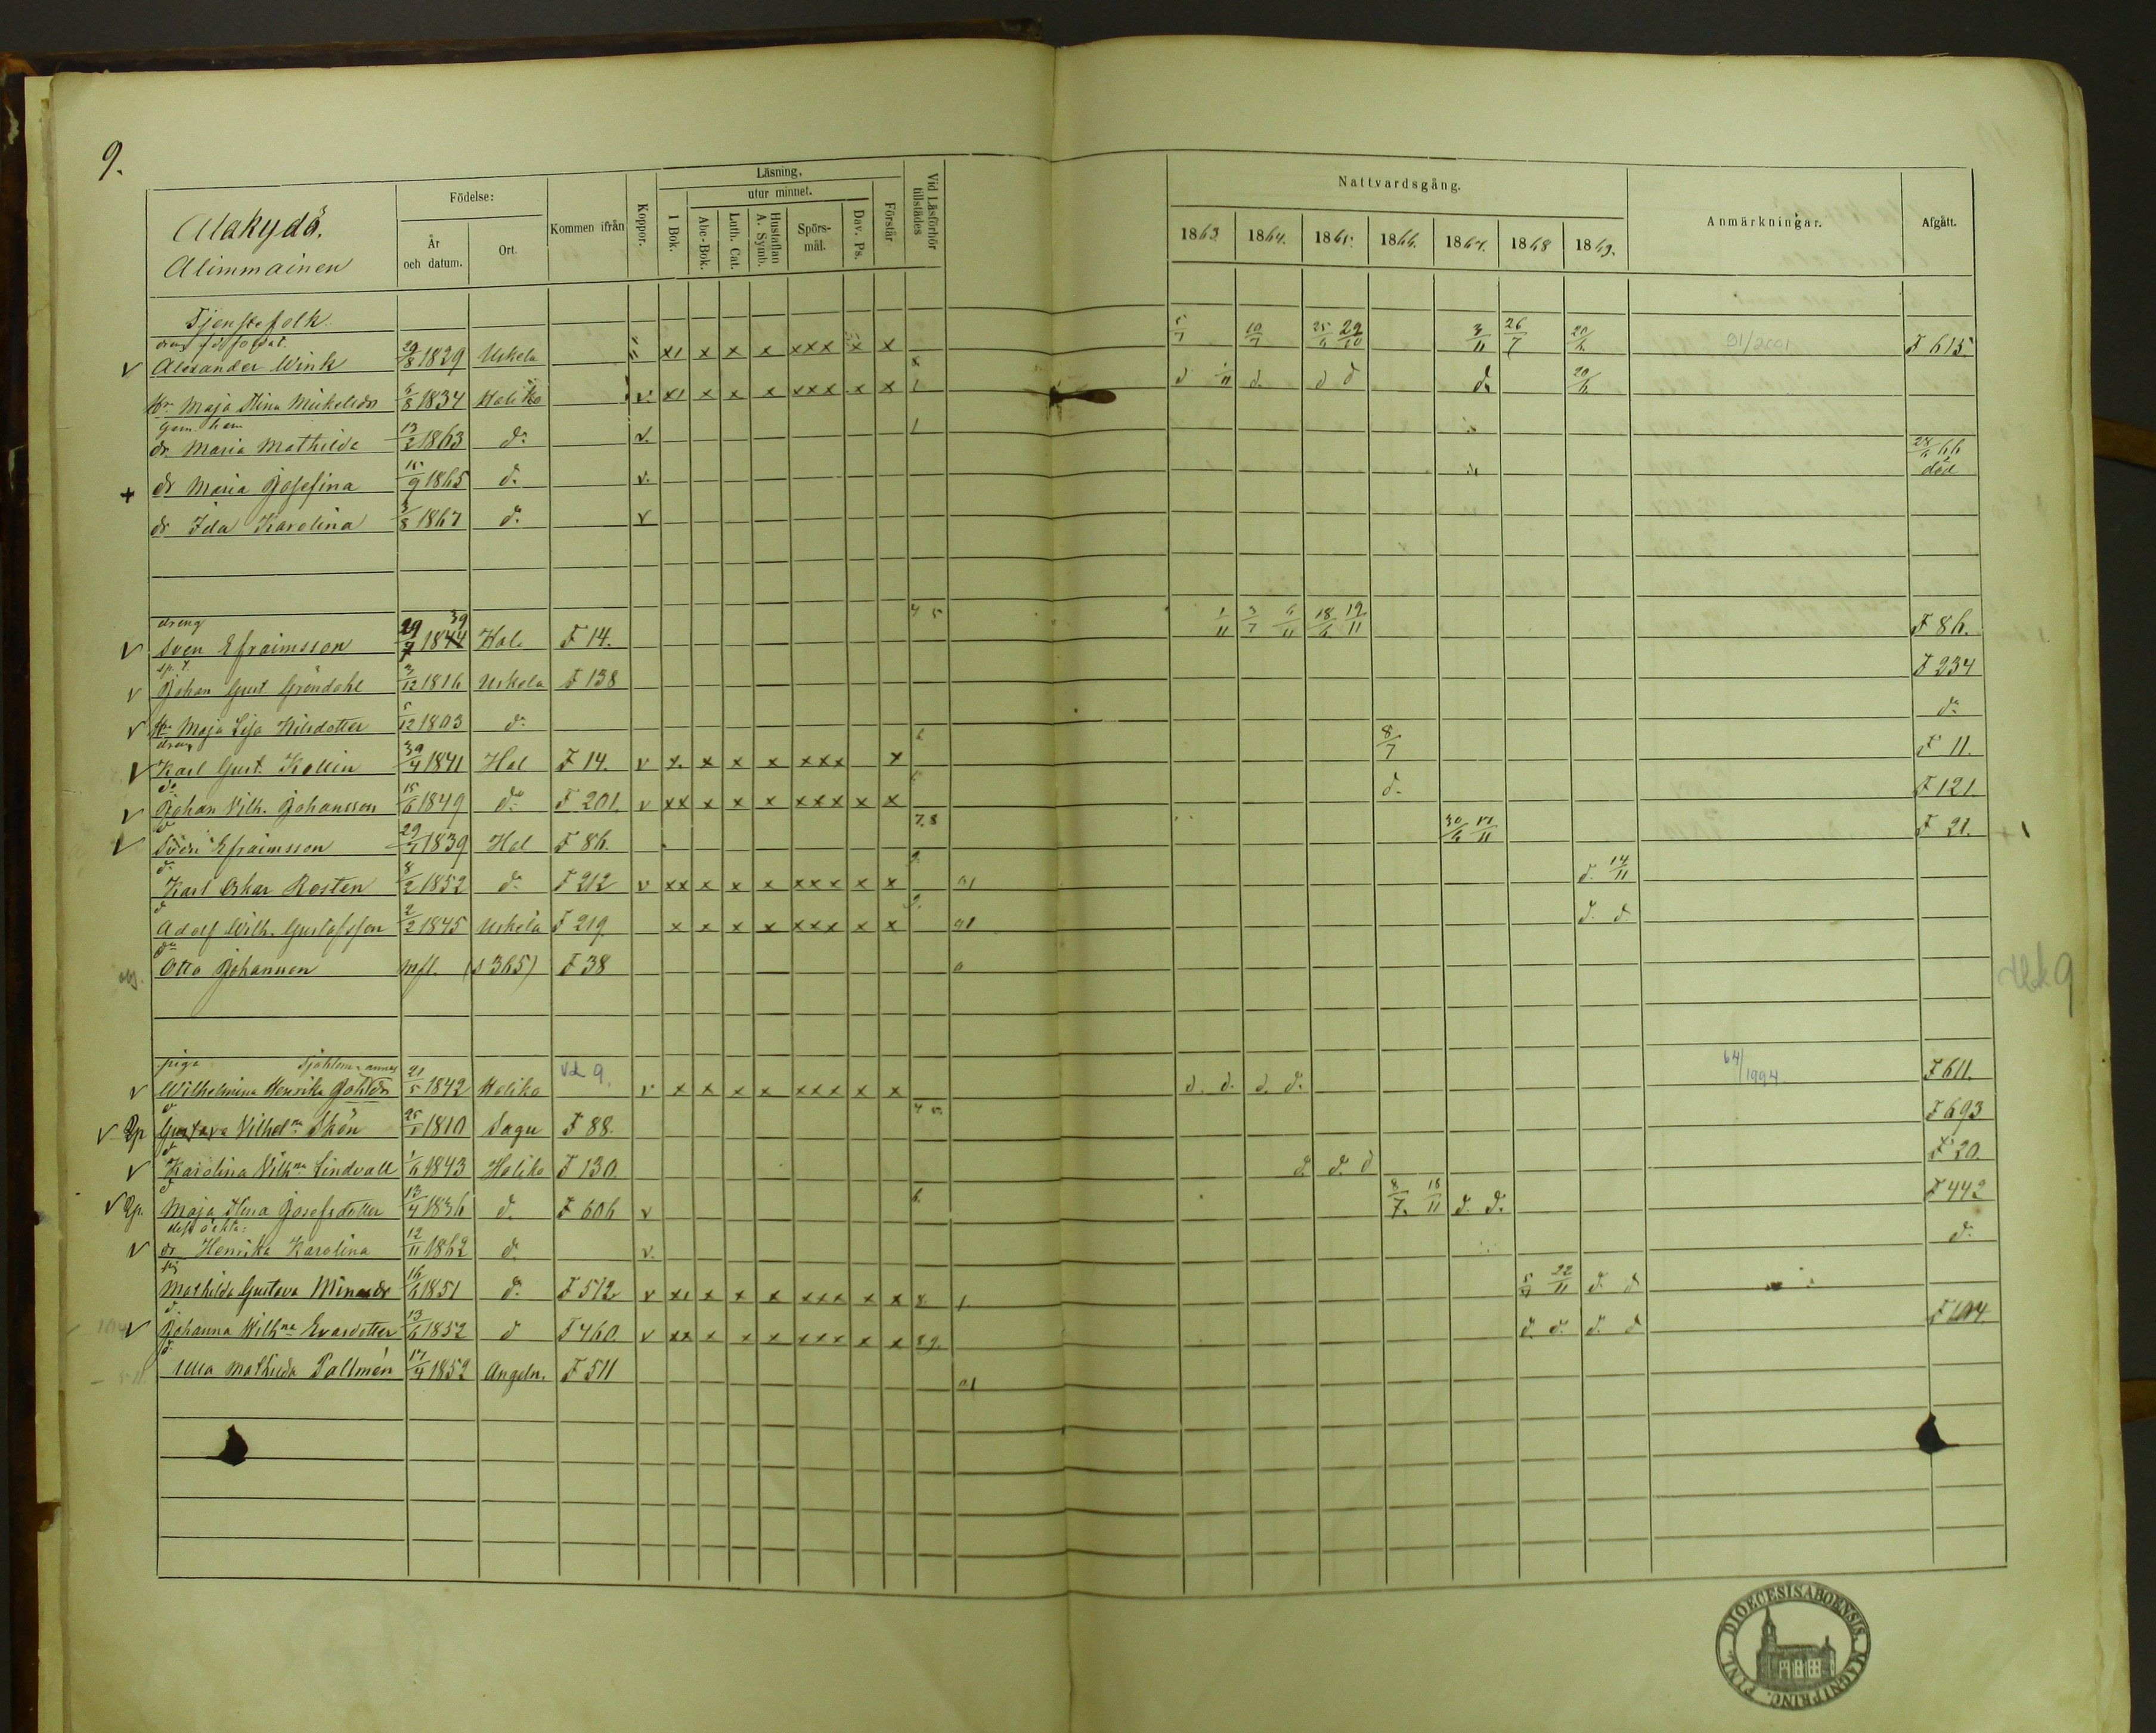 9.
Alakydö.
Alimmainen
Födelse:
År och datum.
Ort.
Kommen ifrån
Koppor.
Läsning,
I Bok.
utur minnet.
Abc-Bok.
Luth. Cat.
Hustaflan A. Symb.
Spörs-mål.
Dav. Ps.
Förstår
Vid Läsförhör tillstädes
Nattvardsgång.
1863 1864. 1865. 1866. 1867. 1868 1869.
Anmärkningar.
Afgått.
Tjenstefolk
Alexander Wink 29/8 1829 Uskela xi x x x xxx x x 5/7 10/7 25/6 29/10 3/11 26/7 20/6 91/2001 F 615
Hu Maja Stina Mickelsdr 6/8 1834 Haliko v. xi x x x xxx x x 1 d. 1/11 d. d d d. 20/6
dr Maria Mathilda 13/2 1863 do v. 1
+ dr Maria Josefina 15/9 1865 d. v. 24/6 66 död
dr Ida Karolina 3/8 1867 do v
dreng
v Sven Efraimsson 29/7 1844 39 Hali F 14. 4 5 1/11 3/7 6/11 18/6 19/11 F 86.
v Johan Gust Gröndahl 3/12 1816 Uskela F 138 F 234
v Hu Maja Lisa Nilsdotter 5/12 1803 do do
dreng
v Karl Gust. Kollin 30/4 1841 Hal F 14. v x. x x x xxx x 6 8/7 F 11.
do
v Johan Vilh. Johansson 15/6 1849 do F 201. v xx x x x xxx x x d. F 121.
v Sven Efraimsson 29/7 1839 Hal F 86. 7.8 30/6 17/11 F 21.
Karl Oskar Rosten 8/2 1852 do F 212 v xx x x x xxx x x 9. d. 14/11
Adolf Wilh. Gustafsson 2/2 1845 Uskela F 219 x x x x xxx x x 9. d. d.
Otto Johannen mfl. (s 365) F 38
piga
v Wilhelmina Henrika Johsdr 21/5 1842 Haliko Vd 9. v x x x x xxx x x d. d. d. d. 64/1994 F 611.
v Gustava Vilhelna Skön 25/1 1810 Sagu F 88. 4 5. F 693
v Karolina Vilhna Lindvall 1/6 1843 Haliko F 130. d. d. d F 20.
v Maja Stina Josefsdotter 13/4 1836 d. F 606 v 6. 8/7. 18/11 d. d. F 442
v dr Henrika Karolina 12/11 1862 d. v. d.
Mathilda Gustava 16/6 1851 do F 512 v xi x x x xxx x x 8. 1. 5/7 22/11 d. d
v Johanna Wilhna Evasdotter 13/6 1852 d F 460 v xx x x x xxx x x 8 9. d. d. d. d
Ulla Mathilda Tallmén 17/4 1852 Angeln. F 511
DIOECESIS ABOENSIS. MAGNI PRINC. FINL.